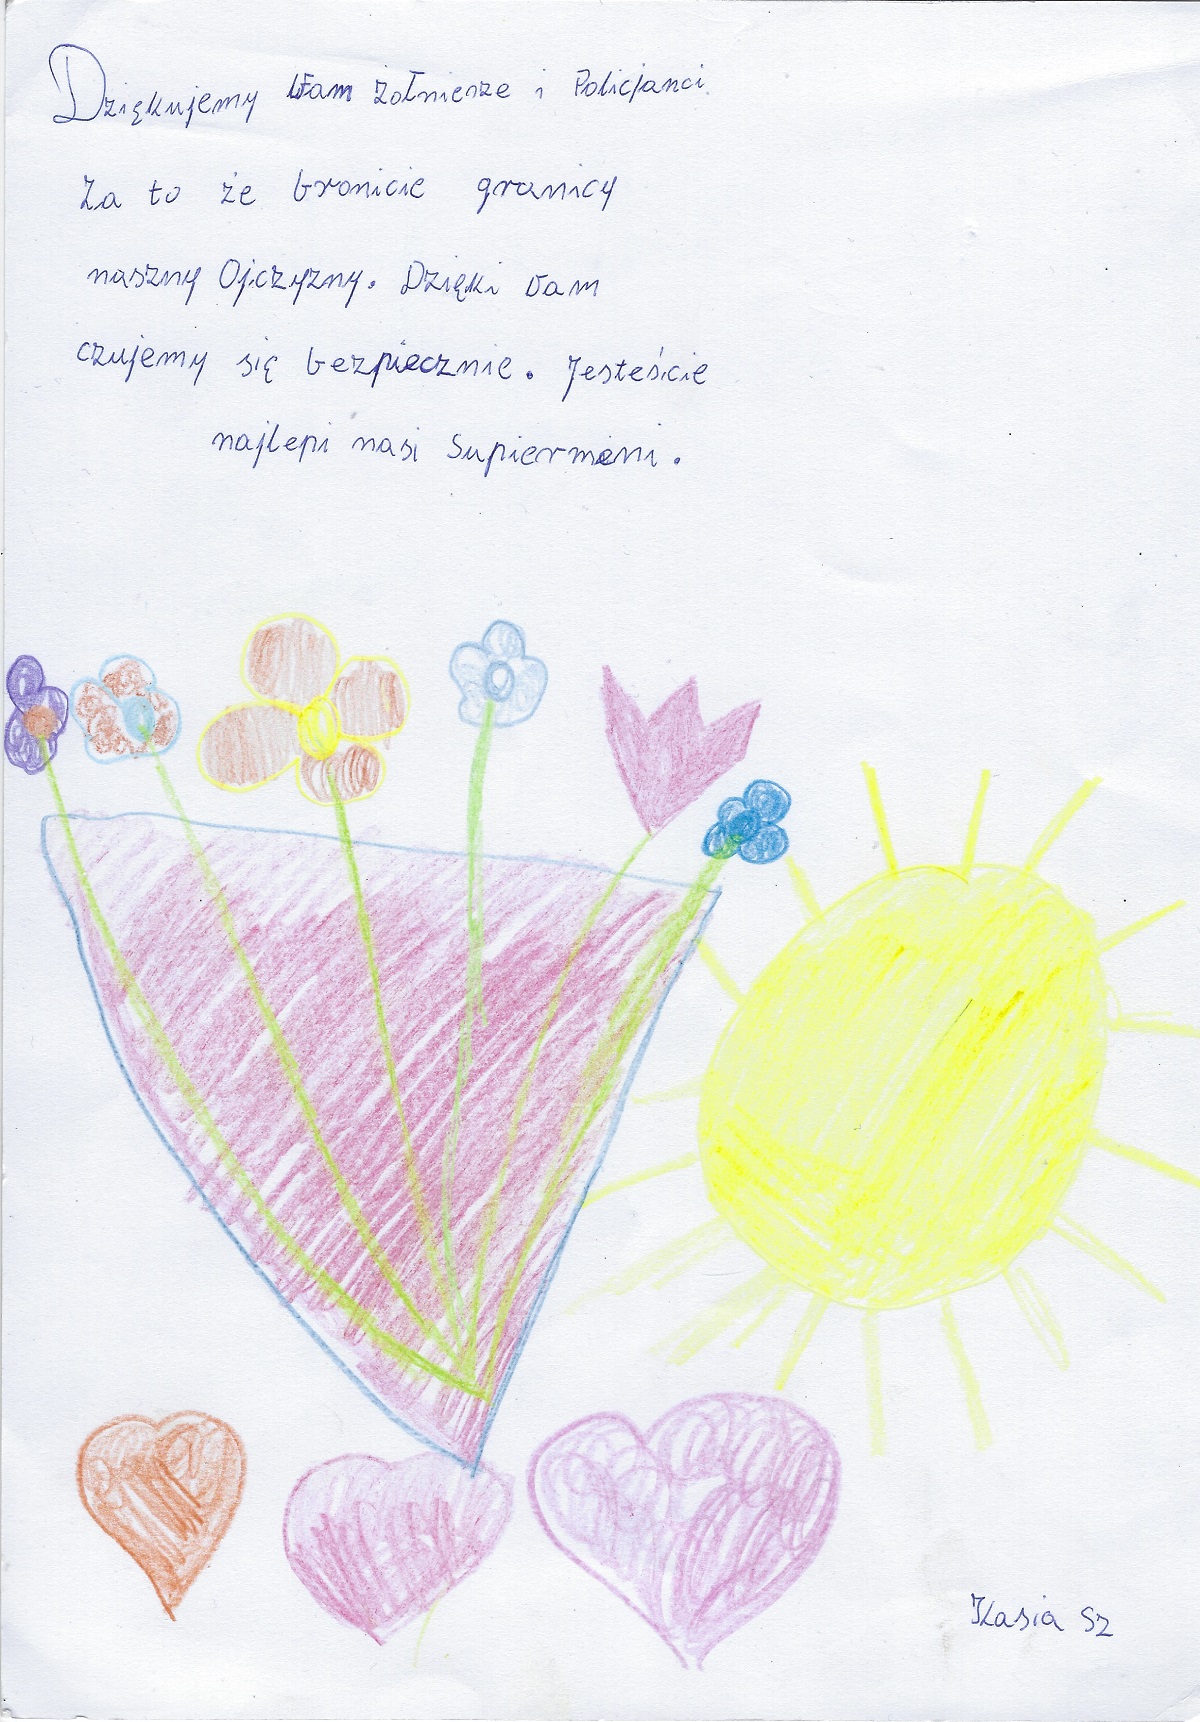 Dziękujemy Wam żołnierze i Policjanci.
Za to że bronicie granicy
naszny Ojczyzny. Dzięki Wam
czujemy się bezpiecznie. Jesteście
najlepi nasi Supiermeni.
Kasia Sz